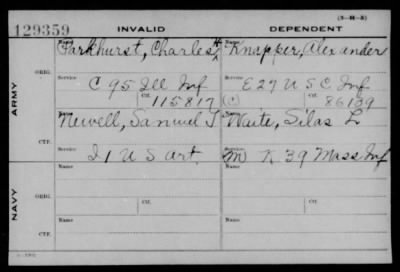 (3-H-3)
129359 INVALID DEPENDENT
ARMY ORIG. Name Parkhurst, Charles H Name Knapper, Alexander
Service C 95 Ill Inf Service E 27 U S C Inf
Ctf. 115817 (c) Ctf. 86139
CTF. Newell, Samuel T Waite, Silas L
I 1 U S art. M K 39 Mass Inf
NAVY ORIG. Name Name
Service Ctf. Service Ctf.
CTF. Name Name